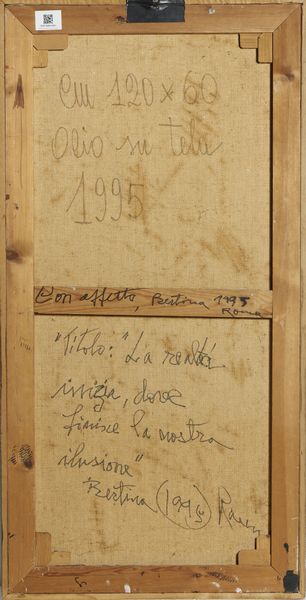 cm 120 x 60
Olio su tela
1995
Con affetto, Bertina 1995
Roma
"Titolo: "La realtà
inizia, dove
finisce la nostra
ilusione"
Bertina (1995)